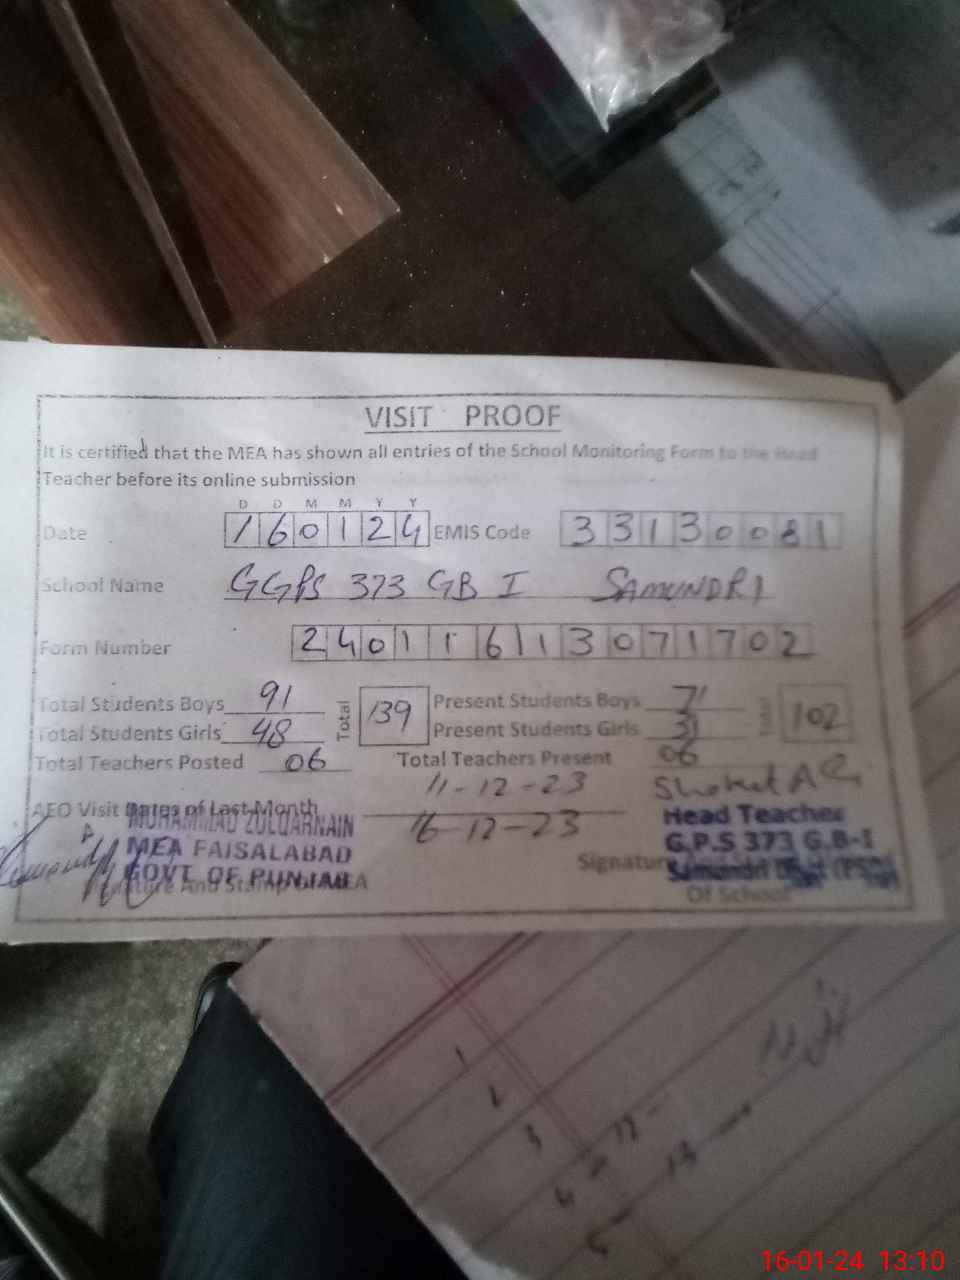 VISIT PROOF
It is certified that the MEA has shown all entries of the School Monitoring Form to the Head
Teacher before its online submission
D D M M Y Y
Date 160124 EMIS Code 33130081
School Name GGPS 373 GB I SAMUNDRI
Form Number 240111611307 1702
Total Students Boys 91 Total 139 Present Students Boys 71 Total 102
Total Students Girls 48 Present Students Girls 31
Total Teachers Posted 06 Total Teachers Present 06
11-12-23
AEO Visit Dates of Last Month
16-12-23
MUHAMMAD ZULQARNAIN
MEA FAISALABAD
GOVT OF PUNJAB
Signature And Stamp Of MEA
Head Teacher
G.P.S 373 G.B-I
Samundri
Signature
Of School
1
3
4
5
12
13
16-01-24 13:10